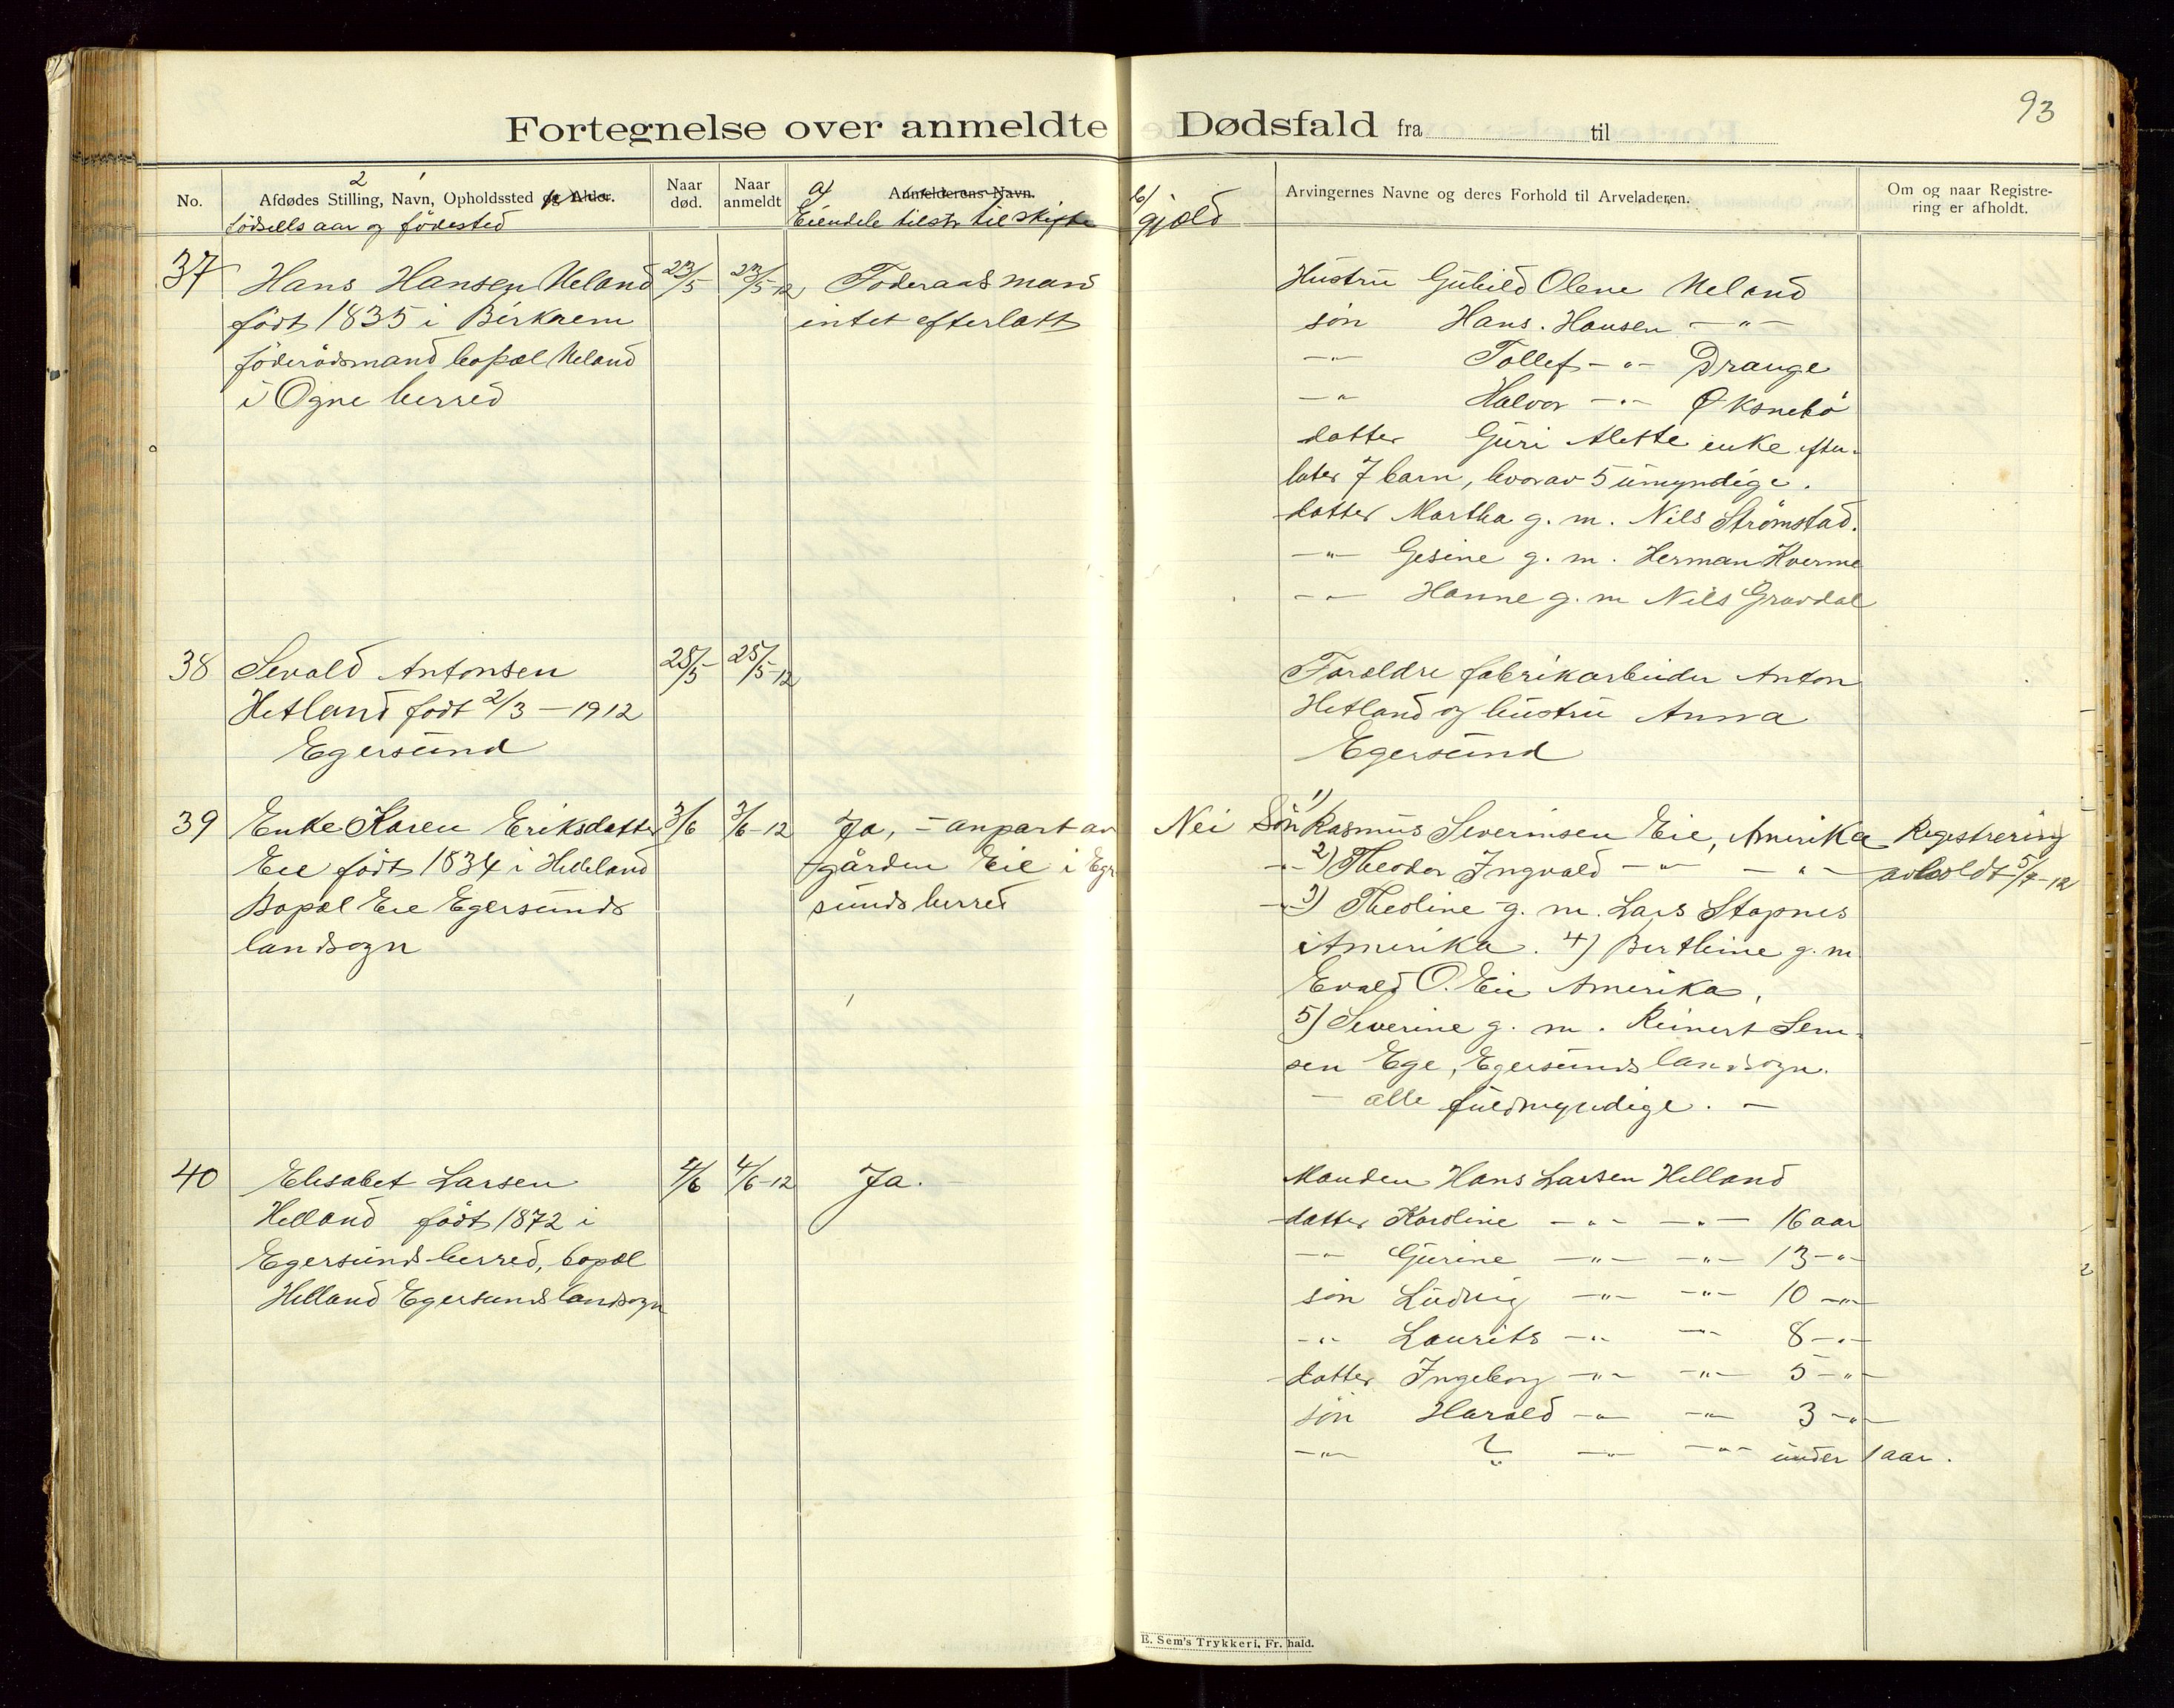 93
Fortegnelse over anmeldte Dødsfald fra til
No.
2 1
Afdødes Stilling, Navn, Opholdssted og Alder.
fødsells aar og födested
Naar død.
Naar anmeldt
a) Anmelderens Navn.
Eiendele tilstr til skifte
b) gjæld
Arvingernes Navne og deres Forhold til Arveladeren.
Om og naar Registre-
ring er afholdt.
37 Hans Hansen Meland 23/5 23/5-12 Föderaads mand
född 1835 i Birkrem intet efterlatt
föderådsmand bopæl Meland
i Ogne herred
Hustru Guhild Olene Meland
søn Hans. Hansen -"-
-"- Tollef -"- Drange
-"- Halvor -"- Øksnebö
datter Guri Alette enke efter-
later 7 barn, hvorav 5 umyndige.
datter Martha g. m. Nils Strømstad.
-"- Gesine g. m. Herman Kverme
-"- Hanne g. m Nils Gravdal
38 Sevald Antonsen 25/5 25/5-12
Hetland født 2/3 - 1912
Egersund
Foreldre fabrikarbeider Anton
Hetland og hustru Anna
Egersund
39 Enke Karen Eriksdatter 3/6 3/6-12 Ja, - anpart av Nei
Eie født 1834 i Helleland gården Eie i Eger
Bopæl Eie Egersunds sunds herred
landsogn
Søn 1) Rasmus Severinsen Eie, Amerika Registrering
-"- 2) Theodor Ingvald -"- -"- avholdt 5/7-12
-"- 3) Theoline g. m. Lars Stapnes
i Amerika. 4) Berthine g. m
Evald O. Eie Amerika,
5) Severine g. m. Reinert Sem-
sen Ege, Egersunds landsogn.
- alle fuldmyndige. -
40 Elisabet Larsen 4/6 4/6-12 Ja.
Helland født 1872 i
Egersunds herred, bopæl
Helland Egersunds landsogn
Manden Hans Larsen Helland
datter Karoline -"- -"- 16 aar
-"- Gurine -"- -"- 13 -"-
søn Ludvig -"- -"- 10 -"-
-"- Laurits -"- -"- 8 -"-
datter Ingeborg -"- -"- 5 -"-
søn Harald -"- -"- 3 -"-
-"- ? -"- -"- under 1 aar.
E. Sem's Trykkeri, Fr. hald.